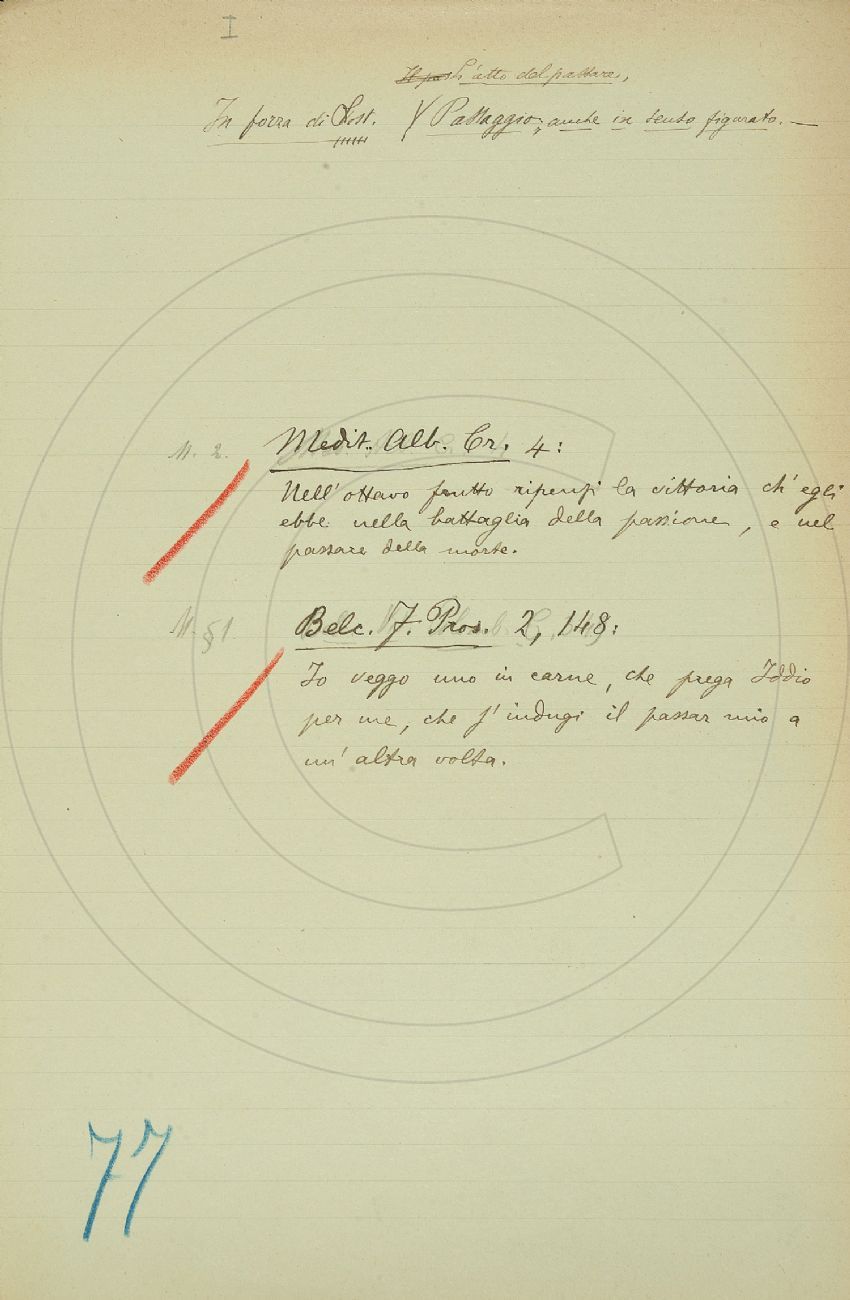 I
Il pas L'atto del passare,
In forza di Sost. Passaggio; anche in senso figurato. —
M. 2.
Medit. Alb. Cr. 4:
Nell'ottavo frutto ripensi la vittoria ch'egli
ebbe nella battaglia della passione, e nel
passare della morte.
M. § 1.
Belc. F. Pros. 2, 148:
Io veggo uno in carne, che prega Iddio
per me, che s'indugi il passar mio a
un'altra volta.
77